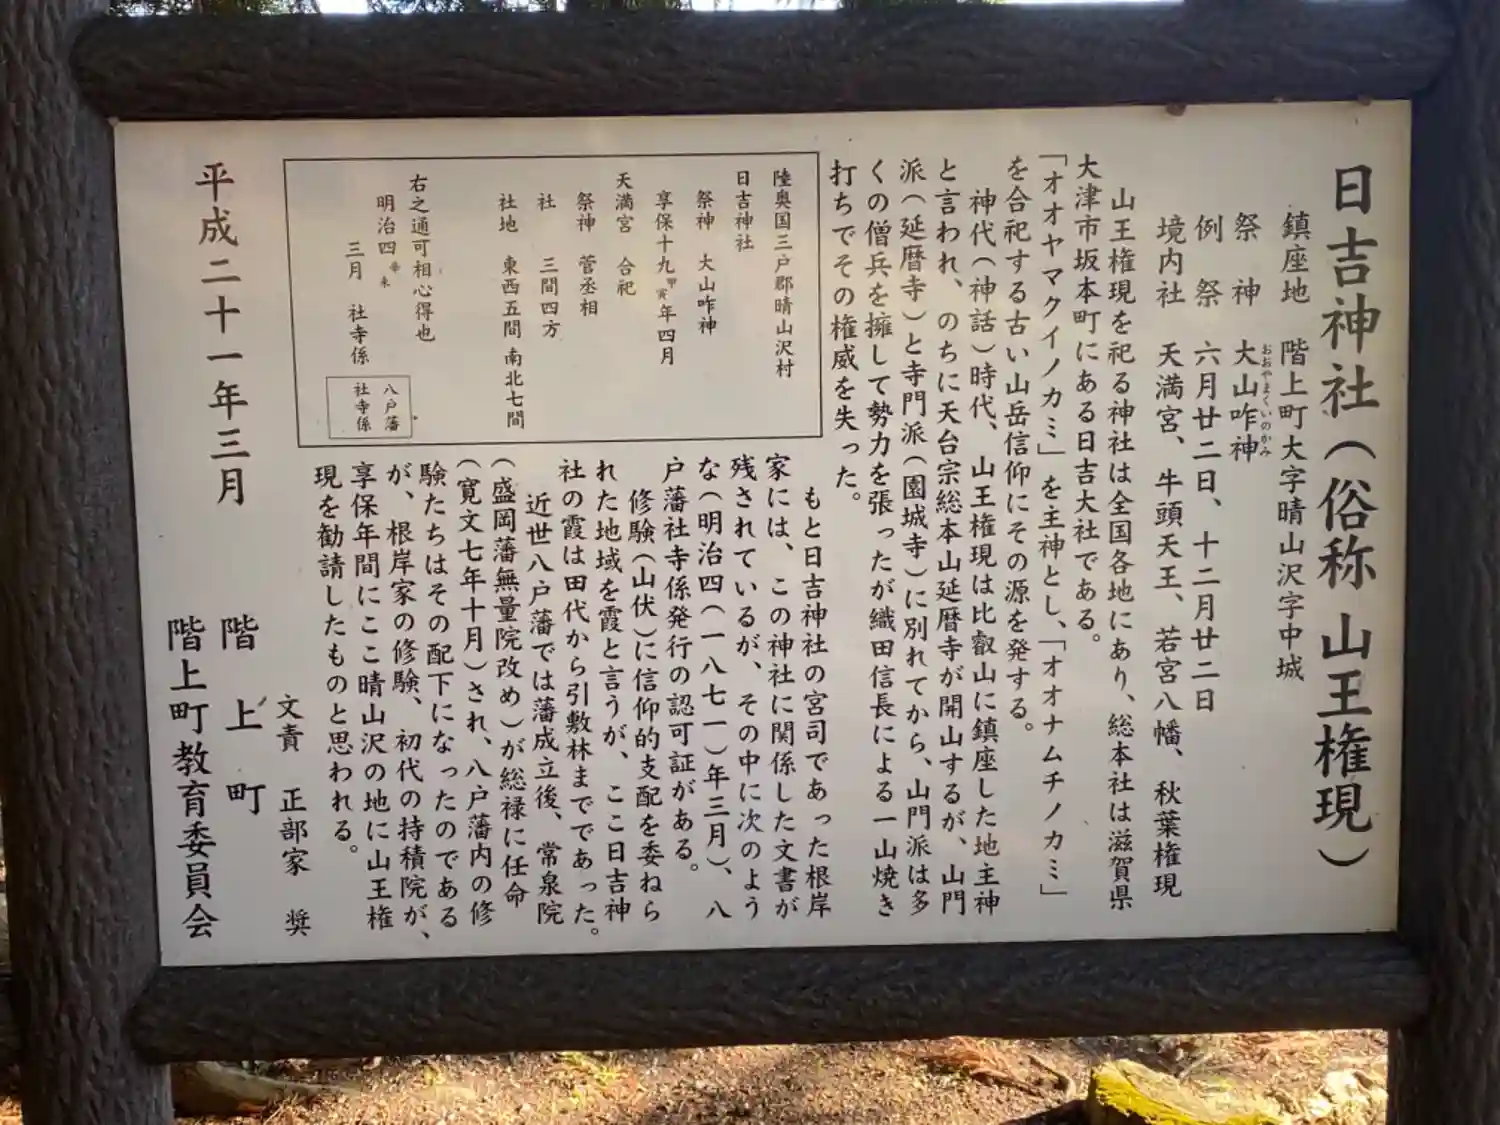 日吉神社（俗称 山王権現）
鎮座地 階上町大字晴山沢字中城
祭神 大山咋神
おおやまくいのかみ
例祭 六月廿二日、十二月廿二日
境内社 天満宮、牛頭天王、若宮八幡、秋葉権現
山王権現を祀る神社は全国各地にあり、総本社は滋賀県
大津市坂本町にある日吉大社である。
「オオヤマクイノカミ」を主神とし、「オオナムチノカミ」
を合祀する古い山岳信仰にその源を発する。
神代（神話）時代、山王権現は比叡山に鎮座した地主神
と言われ、のちに天台宗総本山延暦寺が開山するが、山門
派（延暦寺）と寺門派（園城寺）に別れてから、山門派は多
くの僧兵を擁して勢力を張ったが織田信長による一山焼き
打ちでその権威を失った。
もと日吉神社の宮司であった根岸
家には、この神社に関係した文書が
残されているが、その中に次のよう
な（明治四（一八七一）年三月）、八
戸藩社寺係発行の認可証がある。
修験（山伏）に信仰的支配を委ねら
れた地域を霞と言うが、ここ日吉神
社の霞は田代から引敷林までであった。
近世八戸藩では藩成立後、常泉院
（盛岡藩無量院改め）が総禄に任命
（寛文七年十月）され、八戸藩内の修
験たちはその配下になったのである
が、根岸家の修験、初代の持積院が、
享保年間にここ晴山沢の地に山王権
現を勧請したものと思われる。
陸奥国三戸郡晴山沢村
日吉神社
祭神 大山咋神
享保十九甲寅年四月
天満宮 合祀
祭神 菅丞相
社 三間四方
社地 東西五間 南北七間
右之通可相心得也
明治四辛未
三月 社寺係
八戸藩
社寺係
平成二十一年三月
文責 正部家 奨
階上町
階上町教育委員会